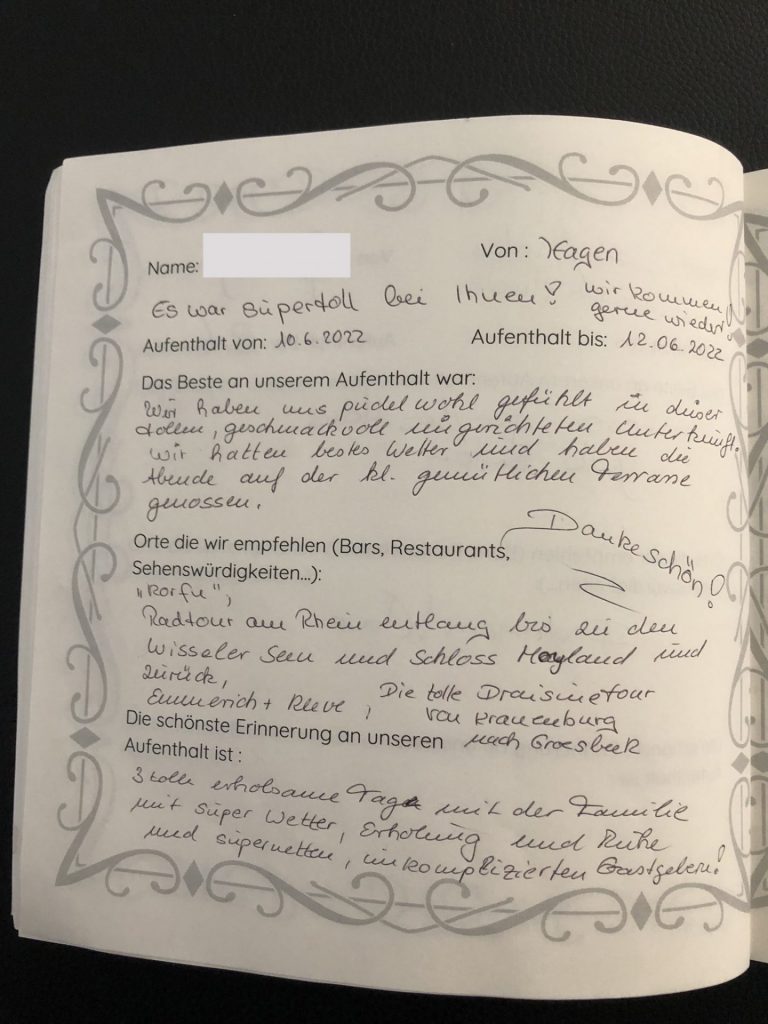 Name:
Von : Hagen
Es war supertoll bei Ihnen! wir kommen
gerne wieder!
Aufenthalt von: 10.6.2022
Aufenthalt bis: 12.06.2022
Das Beste an unserem Aufenthalt war:
Wir haben uns pudelwohl gefühlt in dieser
tollen, geschmackvoll eingerichteten Unterkunft.
Wir hatten bestes Wetter und haben die
Abende auf der kl. gemütlichen Terrasse
genossen.
Dankeschön!
Orte die wir empfehlen (Bars, Restaurants,
Sehenswürdigkeiten...):
„Korfu",
Radtour am Rhein entlang bis zu den
Wisseler Seen und Schloss Moyland und
zurück,
Emmerich + Kleve, Die tolle Draisinetour
von Kranenburg
nach Groesbeek
Die schönste Erinnerung an unseren
Aufenthalt ist :
3 tolle erholsame Tage mit der Familie
mit super Wetter, Erholung und Ruhe
und supernetten, unkomplizierten Gastgebern!